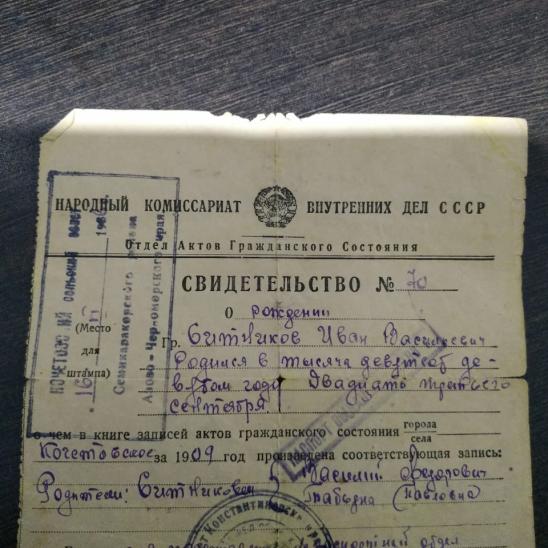 НАРОДНЫЙ КОМИССАРИАТ ВНУТРЕННИХ ДЕЛ СССР
Отдел Актов Гражданского Состояния
СВИДЕТЕЛЬСТВО № 70
О рождении
Гр. Ситников Иван Васильевич
Родился в тысяча девятсот де-
вятом году Двадцать третьего
сентября
о чем в книге записей актов гражданского состояния города
села
Кочетовское за 1909 год произведена соответствующая запись:
Родители: Ситников Василий Федорович
Павловна
(Место
для
штампа)
сельский совет
16 193
Семикаракорского района
Азово-Черноморского края
Константиновск
отдел